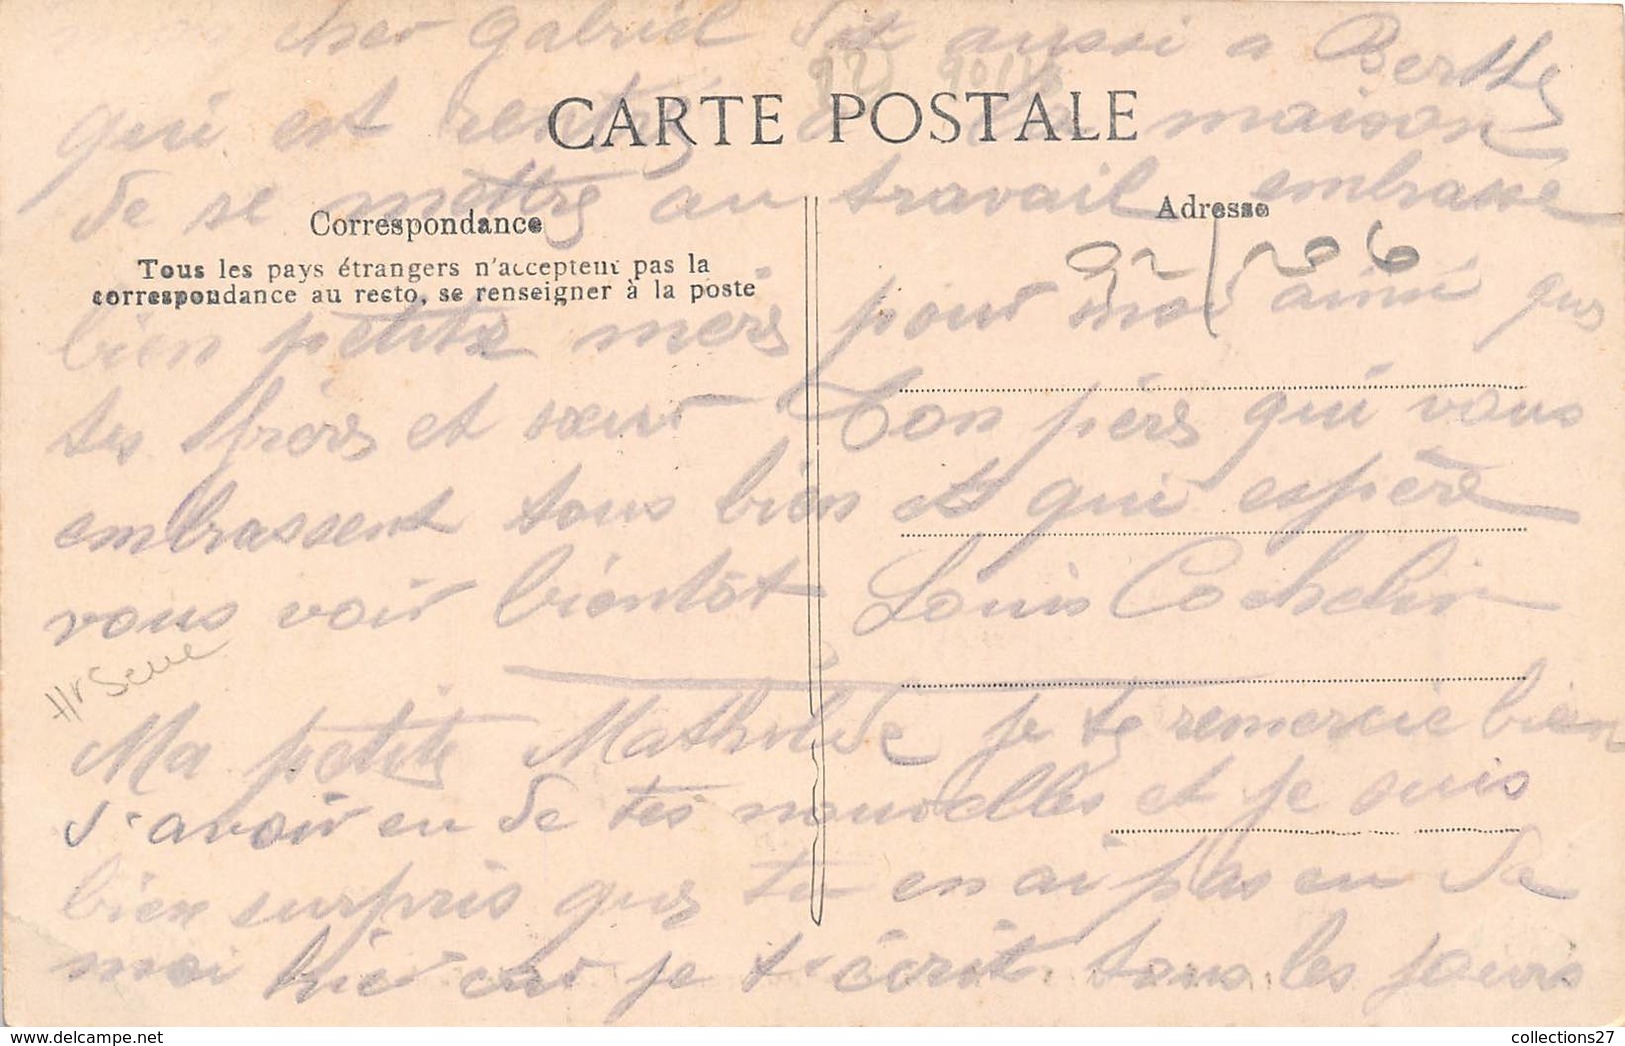 mon cher Gabriel dit aussi a Berthe
92 / 90 / 18
qui est rentré a la maison
CARTE POSTALE
de se mettre au travail embrasse
Correspondance
Adresse
Tous les pays étrangers n'acceptent pas la
correspondance au recto, se renseigner à la poste
92/206
bien petite mere pour moi ainsi que
tes frères et sœur Ton père qui vous
embrassent tous bien et qui espère
vous voir bientôt Louis Cochelin
Hr Seine
Ma petite Mathilde je te remercie bien
d'avoir eu de tes nouvelles et je suis
bien surpris que tu en ai pas eu de
moi hier car je t'écrit tous les jours
collections27